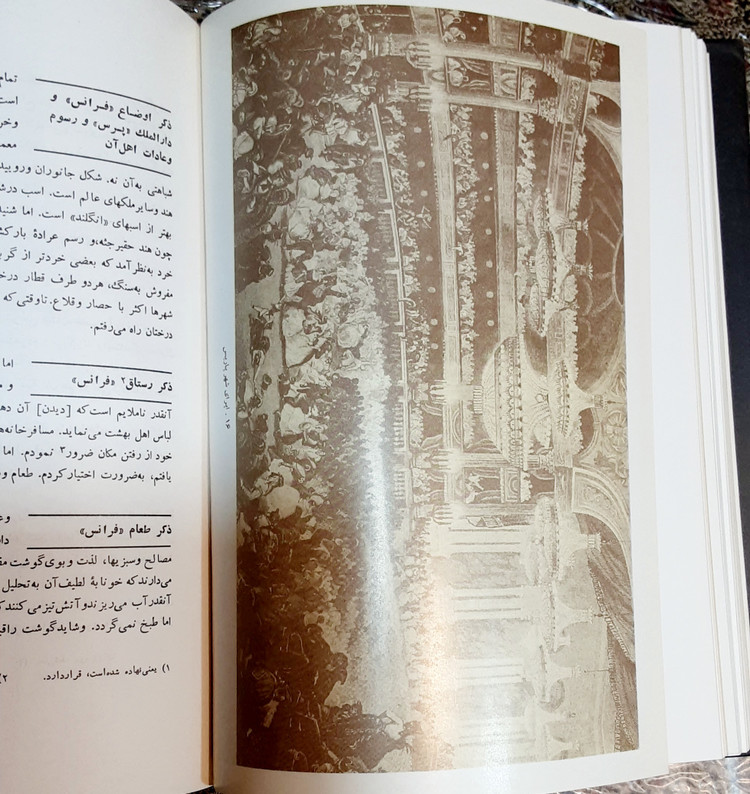 ذکر اوضاع «فرانس» و
دارالملك «پرس» و رسوم
وعادات اهل‌آن
تمام
است
وخر
معم
شباهتی به‌آن نه. شکل جانوران وروییده
هند وسایرملکهای عالم است. اسب درش
بهتر از اسبهای «انگلند» است. اما شنید
چون هند حقیرجثه‌و رسم عرادهٔ بارکش
خرد به‌نظرآمد که بعضی خردتر از گرب
مفروش به‌سنگ، هردو طرف قطار درخ
شهرها اکثر با حصار وقلاع. تاوقتی که
درختان راه می‌رفتم.
ذکر رستاق۲ «فرانس»
اما
و م
آنقدر ناملایم است‌که [دیدن] آن ده
لباس اهل بهشت می‌نماید. مسافرخانه‌ه
خود از رفتن مکان ضرور۳ نمودم. اما
یافتم، به‌ضرورت اختیارکردم. طعام و
ذکر طعام «فرانس»
وع
دا
مصالح وسبزیها، لذت وبوی‌گوشت مف
می‌دارندکه خونابهٔ لطیف‌آن به‌تحلیل
آنقدرآب می‌ریزندوآتش‌تیزمی‌کنندک
اما طبخ نمی‌گردد. وشایدگوشت راقی
۱) یعنی‌نهاده شده‌است، قراردارد.
۲)
۱۶- اپرای شهر پاریس